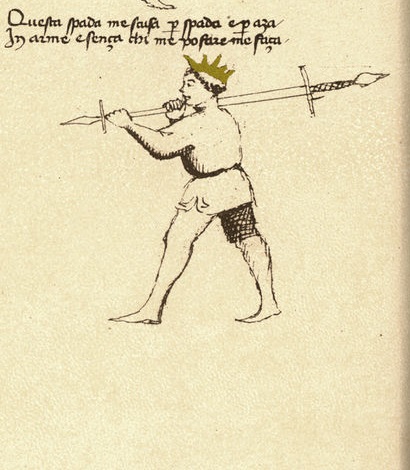 Questa spada me scusa ꝑ spada e ꝑ aza
In arme e sença chi me po fare me faça